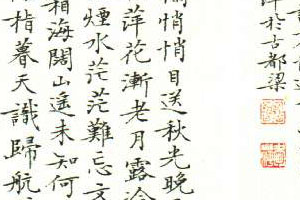 於古都梁
悄悄目送秋光晚
萍花漸老月露冷
煙水茫茫難忘文
海闊山遥未知何
指暮天識歸航